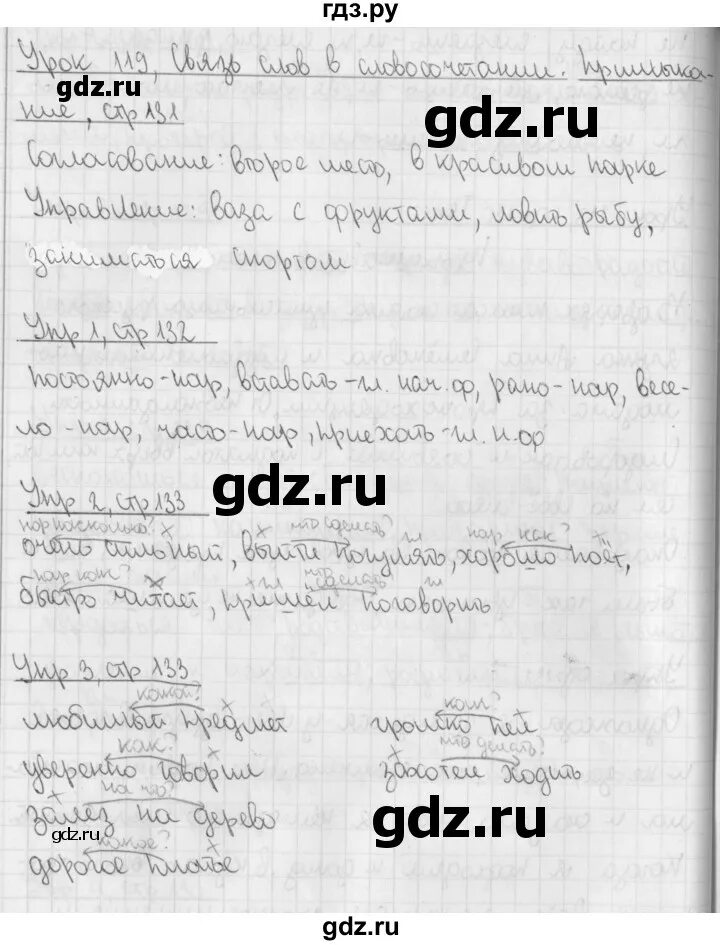 гдз.ру
Урок 119, Связь слов в словосочетании. Примыка-
ние, стр 131
gdz.ru
gdz.ru
Согласование: второе место, в красивом парке
Управление: ваза с фруктами, ловить рыбу,
заниматься спортом
Упр 1, стр 132
постоянно-нар, вставать-гл. нач. ф, рано-нар, весе-
ло-нар, часто-нар, приехать-гл. н. ф
Упр 2, стр 133
gdz.ru
нар насколько? х х что сделать? гл нар как? х
очень сильный, выйти погулять, хорошо поёт,
нар как? х х гл что сделать? гл
быстро читает, пришёл поговорить
Упр 3, стр 133
какой? х как? х
любимый предмет громко пел
как? х х что делать?
уверенно говорил захотел ходить
х на что?
залез на дерево
gdz.ru
gdz.ru
какое? х
дорогое платье
gdz.ru